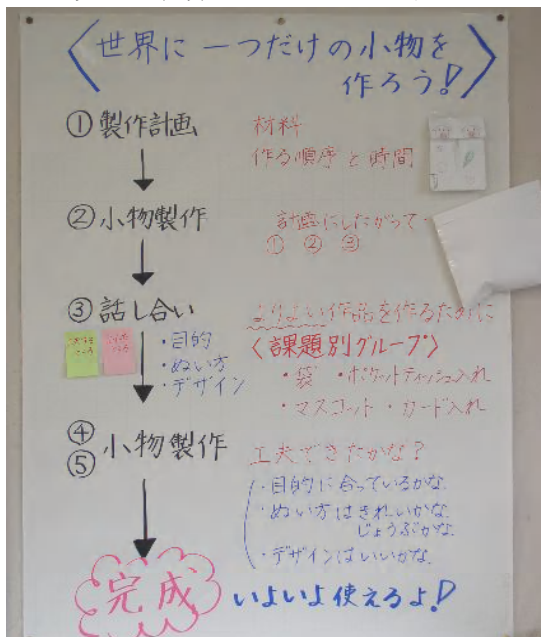 〈世界に一つだけの小物を
作ろう!〉
①製作計画
材料
作る順序と時間
②小物製作
計画にしたがって
① ② ③
③話し合い
よりよい作品を作るために
〈課題別グループ〉
・目的
・ぬい方
・デザイン
・袋 ・ポケットティッシュ入れ
・マスコット ・カード入れ
④
⑤ 小物製作
工夫できたかな?
・目的に合っているかな
・ぬい方はきれいかな
じょうぶかな
・デザインはいいかな
完成
いよいよ使えるよ!